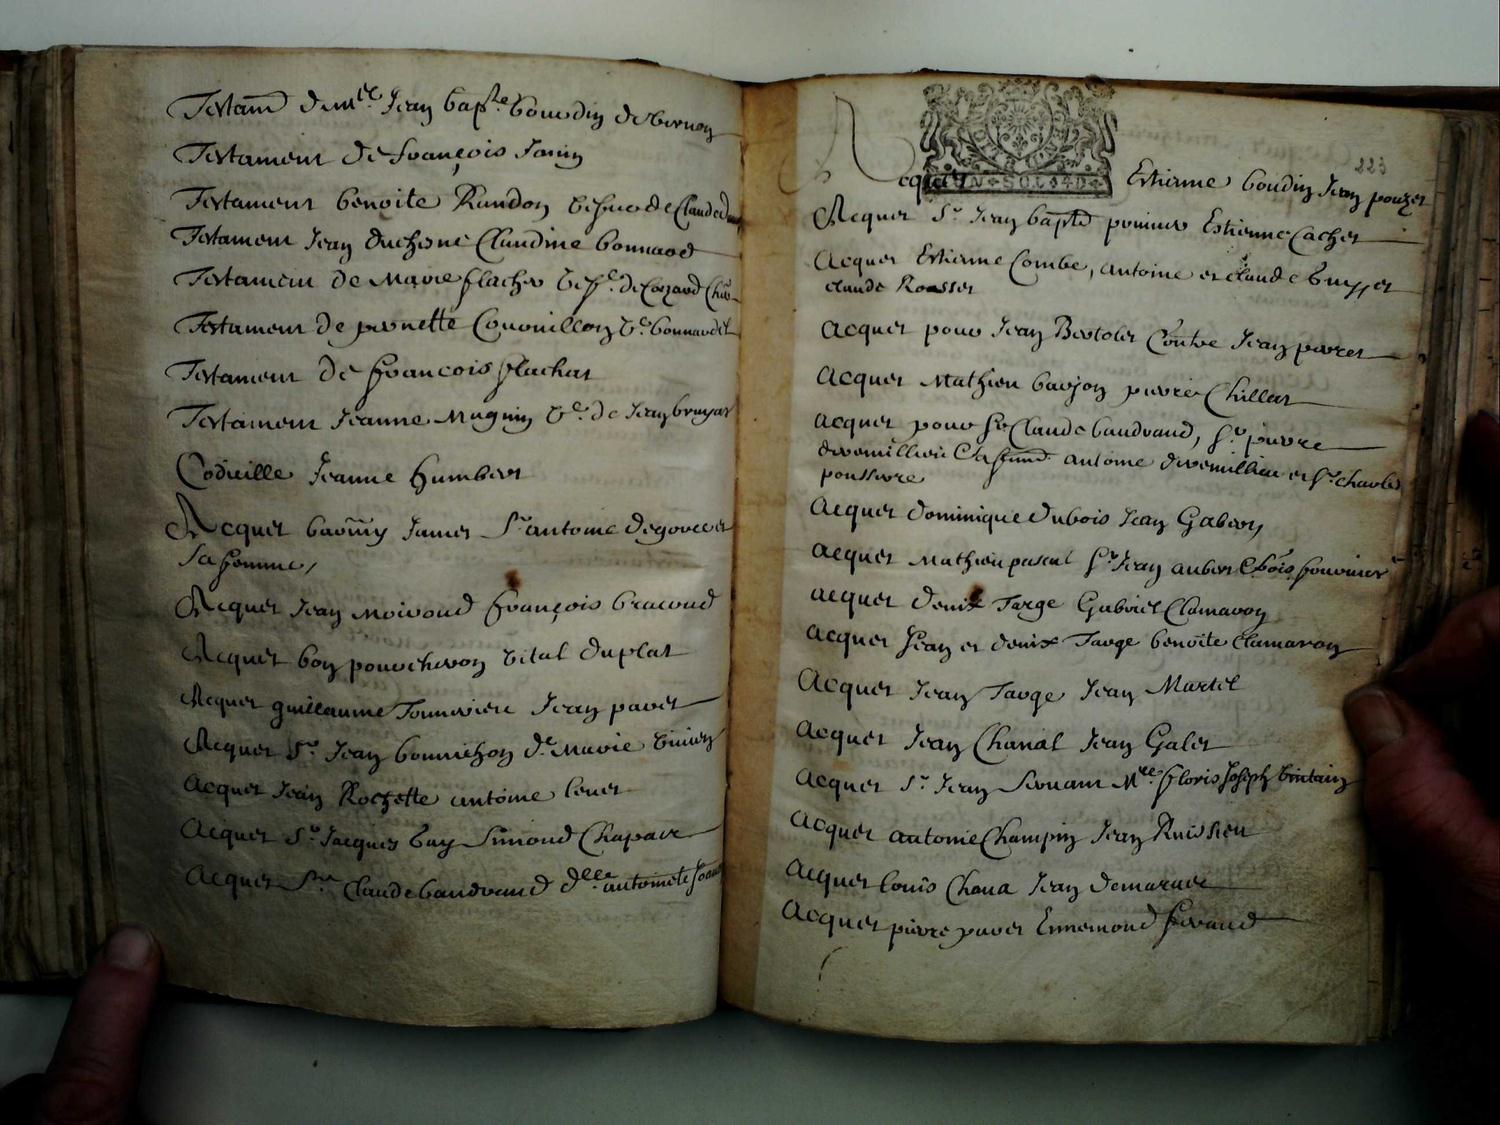 Testam de Mre Jean bapte bourdin de bernon
Testament de françois Janin
Testament benoite Randon vefue de Claude
Testament Jean duchesne Claudine bonnard
Testament de Marie flacher vefe de
Testament de pernette Couvillon ve bonnardel
Testament de françois flachat
Testament Jeanne Muguin ve de Jean bruyas
Codicille Jeanne humbert
Acquet Jamet Sr antoine degovcet
sa femme,
Acquet Jean Moiroud françois bracoud
Acquet bon pourcheron vital duplat
Acquet guillaume Tonnerieu Jean pavet
Acquet Sr Jean bonnichon de Marie
Acquet Jean Rochette antoine levet
Acquet Sr Jacques buy Simond Chapare
Acquet Sr Claude baudrand dlle antoinette
223
Acquet Estienne boudin Jean pouzet
UN SOL 4 D
Acquet Sr Jean baptte Estienne Cachet
Acquet Estienne Combe, antoine et claude
claude Rousset
Acquet pour Jean Bertolet Contre Jean perret
Acquet Mathieu baujon pierre Chillat
acquet pour Sr Claude baudrand, Sr pierre
antoine et Sr charles
poussivre
Acquet dominique dubois Jean Gaberon,
Acquet Mathieu pascal Sr Jean aubert
acquet denix Targe Gabriel Clamaron
acquet Jean et denix Targe benoite Clamaron
Acquet Jean Targe Jean Martel
Acquet Jean Chanal Jean Galet
Acquet Sr Jean Servant Mre floris Joseph
Acquet antoine Champin Jean Ruissieu
Acquet louis Chana Jean demarare
Acquet pierre pavet Ennemond ferraud